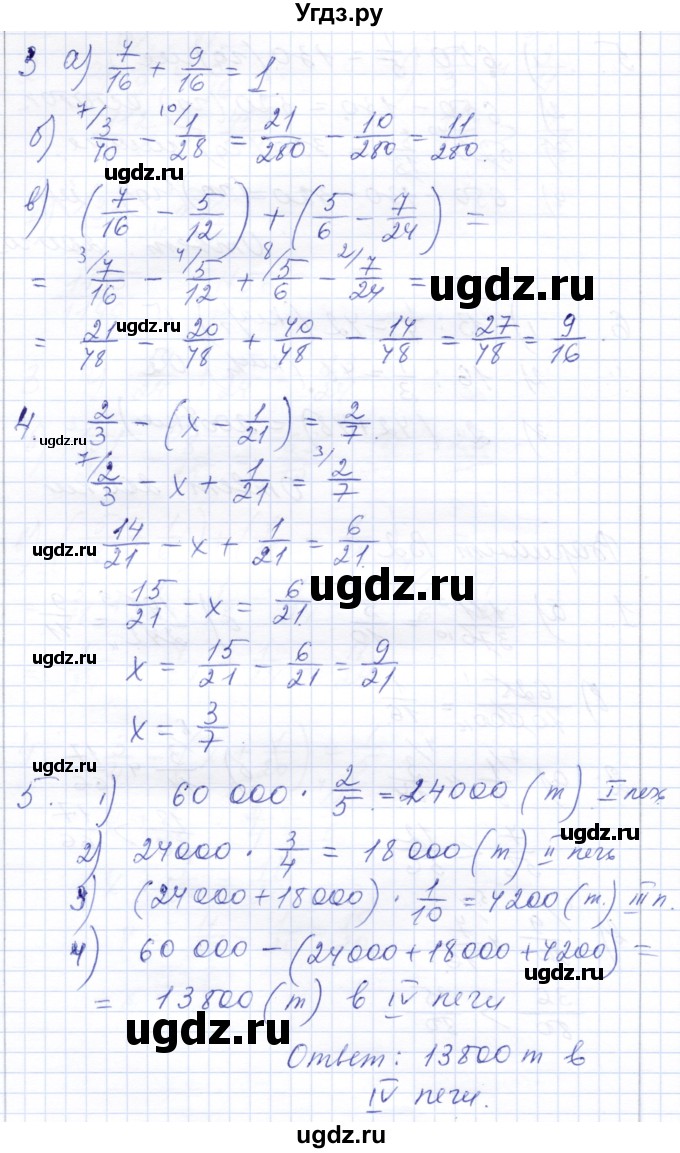 Угдз.ру
3 а) 7/16 + 9/16 = 1.
б) 7/ 3/70 − 10/ 1/28 = 21/280 − 10/280 = 11/280.
ugdz.ru
в) (7/16 − 5/12) + (5/6 − 7/24) =
= 3/ 7/16 − 4/ 5/12 + 8/ 5/6 − 2/ 7/24 =
ugdz.ru
ugdz.ru
= 21/48 − 20/48 + 40/48 − 14/48 = 27/48 = 9/16.
4. 2/3 − (x − 1/21) = 2/7.
ugdz.ru
7/ 2/3 − x + 1/21 = 3/ 2/7
14/21 − x + 1/21 = 6/21.
ugdz.ru
ugdz.ru
15/21 − x = 6/21.
x = 15/21 − 6/21 = 9/21
ugdz.ru
x = 3/7.
ugdz.ru
5. 1) 60 000 · 2/5 = 24000 (т) I печь
ugdz.ru
2) 24000 · 3/4 = 18000 (т) II печь
3) (24000 + 18000) · 1/10 = 4200 (т). III п.
4) 60 000 − (24000 + 18000 + 4200) =
ugdz.ru
= 13800 (т) в IV печи
ugdz.ru
Ответ: 13800 т в
IV печи.
ugdz.ru